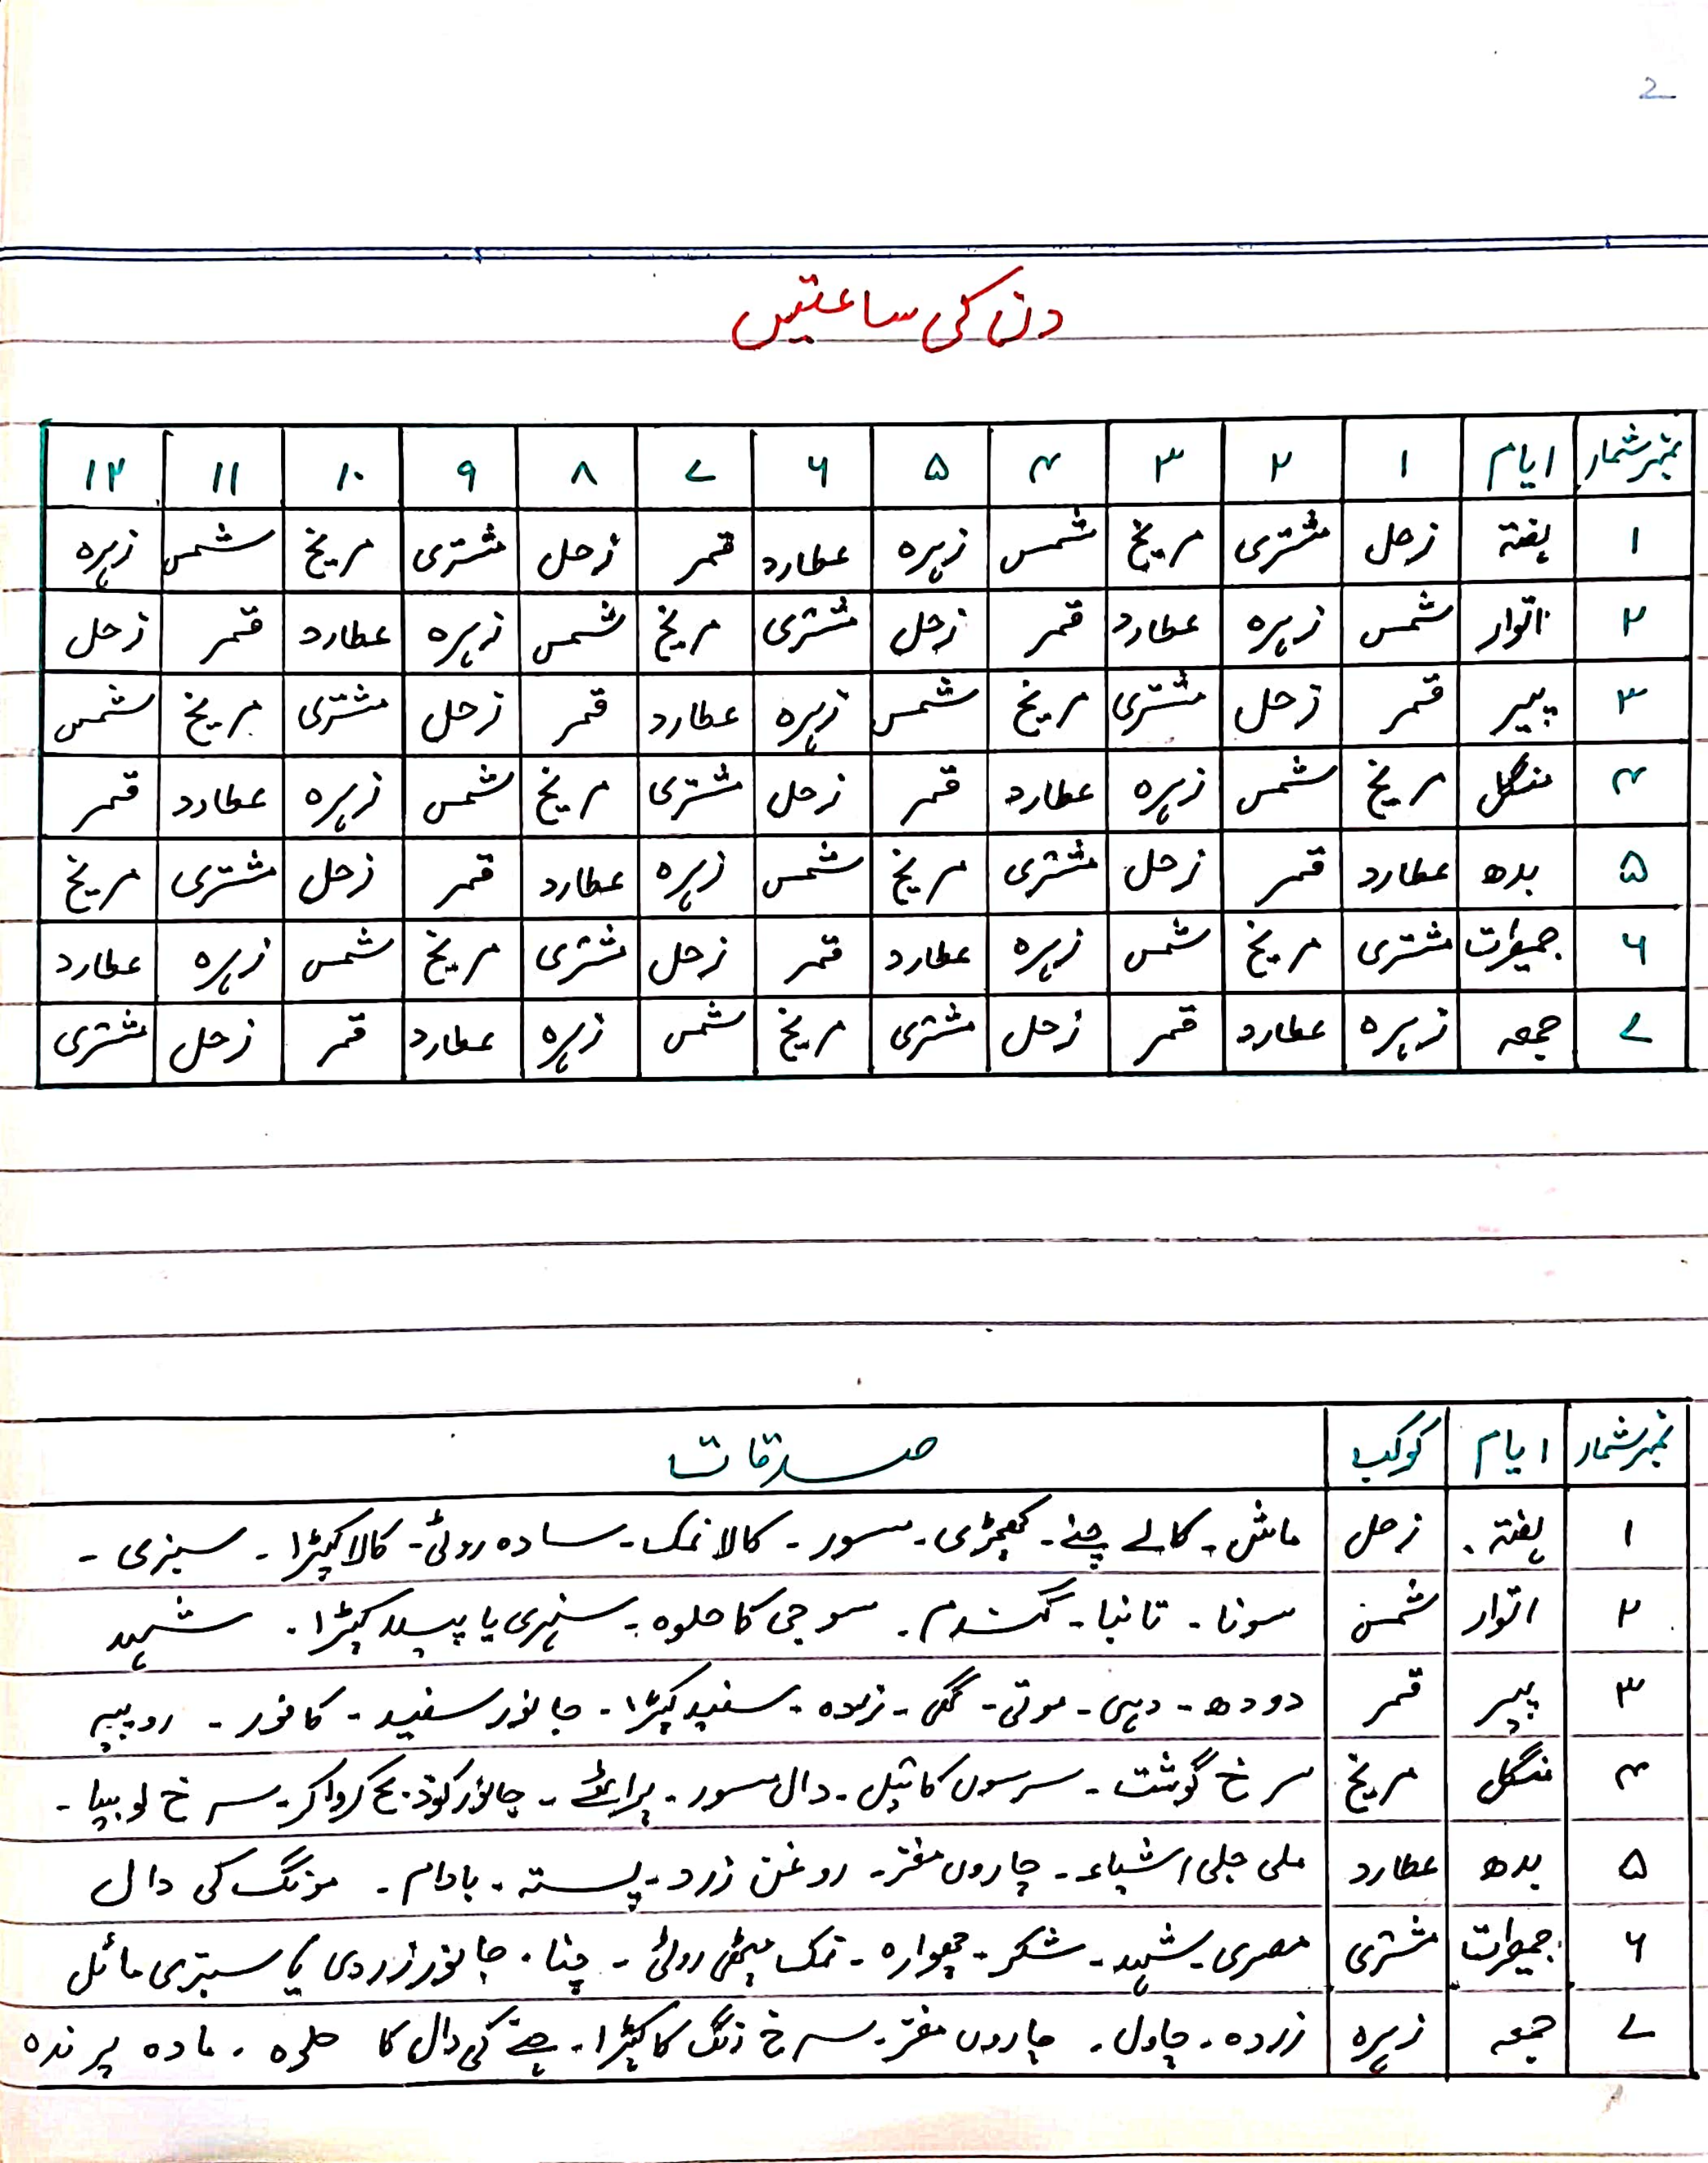 2
دن کی ساعتیں
نمبر شمار ایام ۱ ۲ ۳ ۴ ۵ ۶ ۷ ۸ ۹ ۱۰ ۱۱ ۱۲
۱ ہفتہ زحل مشتری مریخ شمس زہرہ عطارد قمر زحل مشتری مریخ شمس زہرہ
۲ اتوار شمس زہرہ عطارد قمر زحل مشتری مریخ شمس زہرہ عطارد قمر زحل
۳ پیر قمر زحل مشتری مریخ شمس زہرہ عطارد قمر زحل مشتری مریخ شمس
۴ منگل مریخ شمس زہرہ عطارد قمر زحل مشتری مریخ شمس زہرہ عطارد قمر
۵ بدھ عطارد قمر زحل مشتری مریخ شمس زہرہ عطارد قمر زحل مشتری مریخ
۶ جمیرات مشتری مریخ شمس زہرہ عطارد قمر زحل مشتری مریخ شمس زہرہ عطارد
۷ جمعہ زہرہ عطارد قمر زحل مشتری مریخ شمس زہرہ عطارد قمر زحل مشتری
نمبر شمار ایام کوکب صدقات
۱ ہفتہ زحل ماش۔ کالے چنے۔ کھچڑی۔ مسور۔ کالا نمک۔ سادہ روٹی۔ کالا کپڑا۔ سبزی۔
۲ اتوار شمس سونا۔ تانبا۔ گندم۔ سوجی کا حلوہ۔ سنہری یا پیلا کپڑا۔ شہد
۳ پیر قمر دودھ۔ دہی۔ موتی۔ گھی۔ سفید کپڑا۔ جانور سفید۔ کافور۔ روپیہ
۴ منگل مریخ سرخ گوشت۔ سرسوں کا تیل۔ دال مسور۔ پراٹھے۔ جانور کو ذبح کروا کر۔ سرخ لوبیا۔
۵ بدھ عطارد ملی جلی اشیاء۔ چاروں مغز۔ روغن زرد۔ پستہ۔ بادام۔ مونگ کی دال
۶ جمیرات مشتری مصری۔ شہد۔ شکر۔ چھوارہ۔ نمک میٹھی روٹی۔ چنا۔ جانور زردی یا سبزی مائل
۷ جمعہ زہرہ زردہ۔ چاول۔ چاروں مغز۔ سرخ رنگ کا کپڑا۔ چنے کی دال کا حلوہ۔ مادہ پرندہ